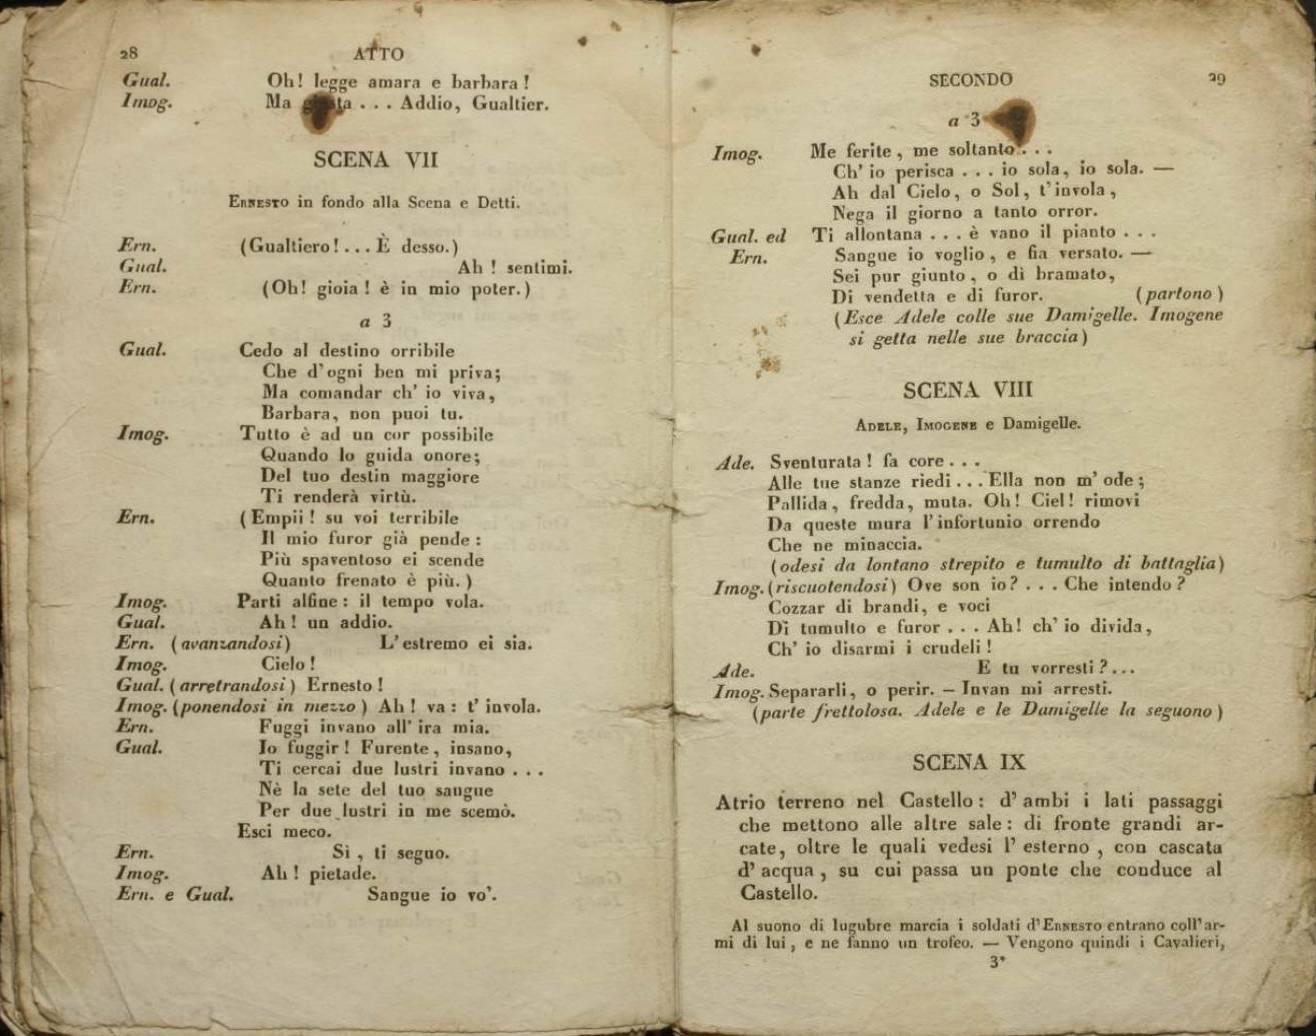 28 ATTO
Gual. Oh! legge amara e barbara!
Imog. Ma ... Addio, Gualtier.
SCENA VII
ERNESTO in fondo alla Scena e Detti.
Ern. (Gualtiero!... È desso.)
Gual. Ah! sentimi.
Ern. (Oh! gioia! è in mio poter.)
a 3
Gual. Cedo al destino orribile
Che d'ogni ben mi priva;
Ma comandar ch' io viva,
Barbara, non puoi tu.
Imog. Tutto è ad un cor possibile
Quando lo guida onore;
Del tuo destin maggiore
Ti renderà virtù.
Ern. (Empii! su voi terribile
Il mio furor già pende:
Più spaventoso ei scende
Quanto frenato è più.)
Imog. Parti alfine: il tempo vola.
Gual. Ah! un addio.
Ern. (avanzandosi) L'estremo ei sia.
Imog. Cielo!
Gual. (arretrandosi) Ernesto!
Imog. (ponendosi in mezzo) Ah! va: t' invola.
Ern. Fuggi invano all' ira mia.
Gual. Io fuggir! Furente, insano,
Ti cercai due lustri invano ...
Nè la sete del tuo sangue
Per due lustri in me scemò.
Esci meco.
Ern. Sì, ti seguo.
Imog. Ah! pietade.
Ern. e Gual. Sangue io vo'.
SECONDO 29
a 3
Imog. Me ferite, me soltanto ...
Ch' io perisca ... io sola, io sola. —
Ah dal Cielo, o Sol, t'invola,
Nega il giorno a tanto orror.
Gual. ed Ti allontana ... è vano il pianto ...
Ern. Sangue io voglio, e fia versato. —
Sei pur giunto, o dì bramato,
Di vendetta e di furor. (partono)
(Esce Adele colle sue Damigelle. Imogene
si getta nelle sue braccia)
SCENA VIII
ADELE, IMOGENE e Damigelle.
Ade. Sventurata! fa core ...
Alle tue stanze riedi ... Ella non m' ode;
Pallida, fredda, muta. Oh! Ciel! rimovi
Da queste mura l'infortunio orrendo
Che ne minaccia.
(odesi da lontano strepito e tumulto di battaglia)
Imog. (riscuotendosi) Ove son io? ... Che intendo?
Cozzar di brandi, e voci
Di tumulto e furor ... Ah! ch' io divida,
Ch' io disarmi i crudeli!
Ade. E tu vorresti?...
Imog. Separarli, o perir. — Invan mi arresti.
(parte frettolosa. Adele e le Damigelle la seguono)
SCENA IX
Atrio terreno nel Castello: d' ambi i lati passaggi
che mettono alle altre sale: di fronte grandi ar-
cate, oltre le quali vedesi l' esterno, con cascata
d' acqua, su cui passa un ponte che conduce al
Castello.
Al suono di lugubre marcia i soldati d'ERNESTO entrano coll'ar-
mi di lui, e ne fanno un trofeo. — Vengono quindi i Cavalieri,
3*